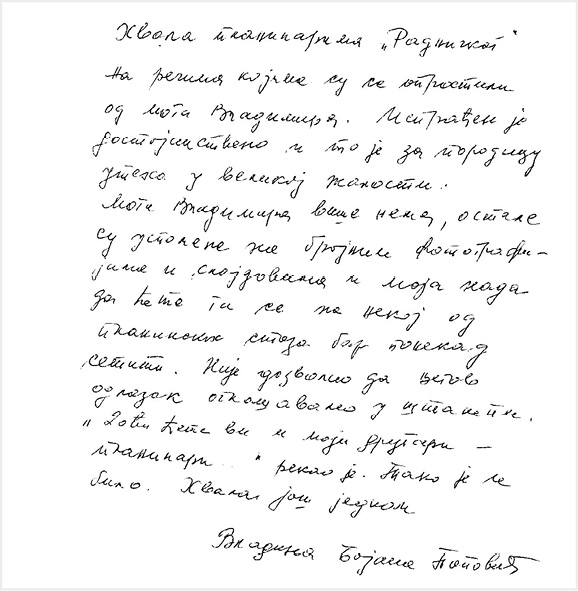 Хвала планинарима „Радничког“
на речима којима су се опростили
од мога Владимира. Испраћен је
достојанствено и то је за породицу
утеха у великој жалости.
Мога Владимира више нема, остале
су успомене на бројним фотографи-
јама и слајдовима и моја нада
да ћете га се на некој од
планинских стаза бар понекад
сетити. Није дозволио да његов
одлазак оглашавамо у штампи.
„Доћи ћете ви и моји другари –
планинари...“ рекао је. Тако је и
било. Хвала још једном
Владина Бојана Поповић